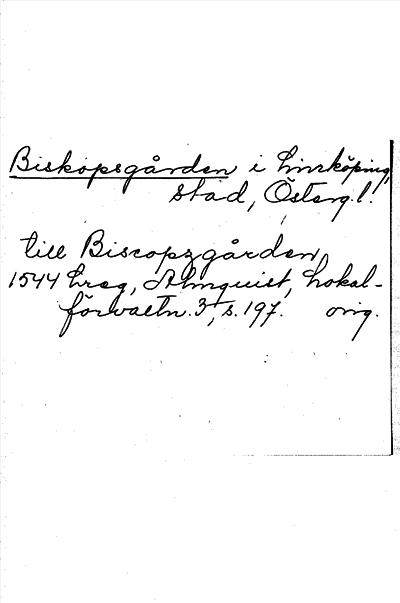 Biskopsgården i Linköping
stad, Österg.l.
till Biscopzgården,
1544 hreg, Almquist, Lokal-
förvaltn. 3, s. 197. orig.